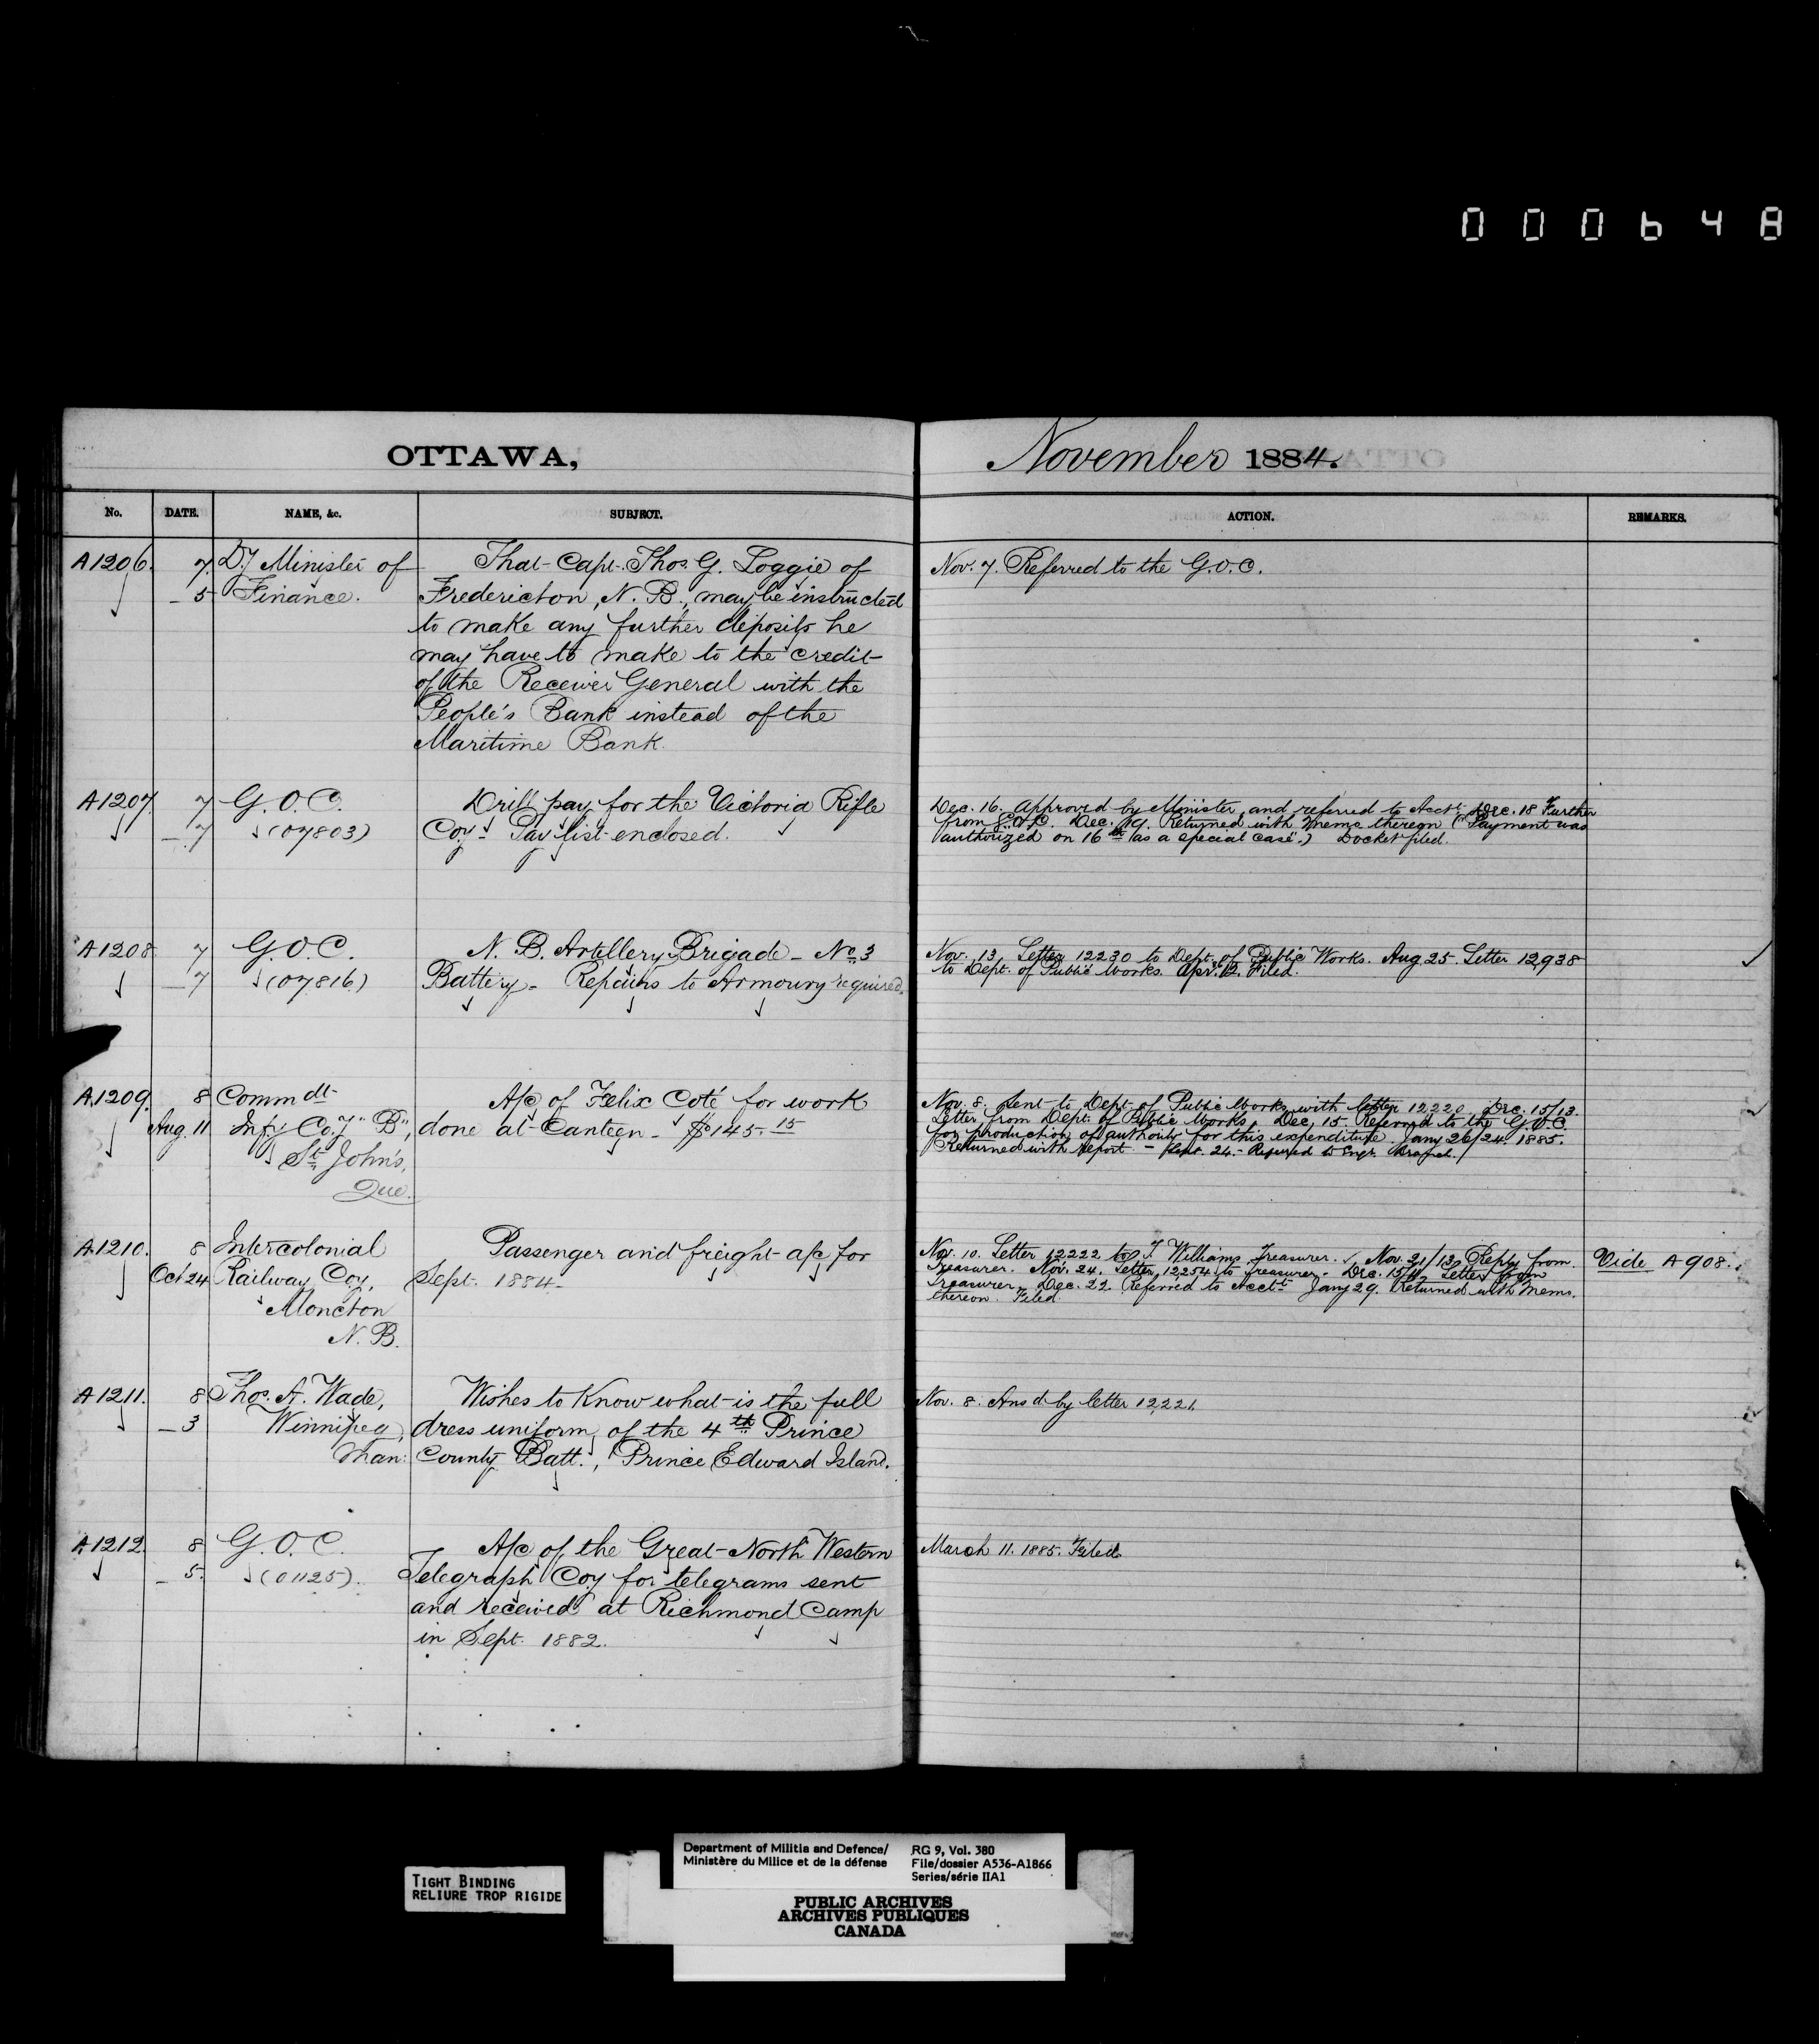 000648
OTTAWA,
November 1884.
No. DATE. NAME, &c. SUBJECT. ACTION. REMARKS.
A1206. 7. Dy Minister of
- 5 Finance.
That Capt. Thos. G. Loggie of
Fredericton, N. B., may be instructed
to make any further deposits he
may have to make to the credit
of the Receiver General with the
People's Bank instead of the
Maritime Bank.
Nov. 7. Referred to the G.O.C.
A1207 7 G. O. C.
- 7 (07803)
Drill pay for the Victoria Rifle
Coy - Pay list enclosed.
Dec. 16. Approved by Minister, and referred to Acct. Dec. 18 Further
from G.O.C. Dec. 19. Returned with memo thereon ("Payment was
authorized on 16th as a special case".) Docket filed.
A1208 7 G. O. C.
- 7 (07816)
N. B. Artillery Brigade - No. 3
Battery - Repairs to Armoury required.
Nov. 13. Letter 12230 to Dept. of Public Works. Aug 25. Letter 12,938
to Dept. of Public Works. Apr. 12. Filed.
A1209. 8 Commdt
Aug. 11 Infy Coy "B",
St. John's,
Que.
A/c of Felix Coté for work
done at Canteen - $145.15
Nov. 8. Sent to Dept. of Public Works with letter 12220. Dec. 15/13.
Letter from Dept. of Public Works. Dec. 15. Referred to the G.O.C.
for production of authority for this expenditure. Jany 26/24. 1885.
Returned with report. - Sept. 24. - Referred to Engr. Branch.
A1210. 8 Intercolonial
Oct 24 Railway Coy,
Moncton
N. B.
Passenger and freight a/c for
Sept. 1884 -
Nov. 10. Letter 12222 to T Williams, Treasurer. Nov. 21/13 Reply from
Treasurer. Nov. 24. Letter 12254 to Treasurer - Dec. 15/11. Letter from
Treasurer. Dec. 22. Referred to Acct. Jany 29. Returned with Memo.
thereon. Filed.
Vide A 908.
A1211. 8 Thos. A. Wade,
- 3 Winnipeg,
Man:
Wishes to know what is the full
dress uniform of the 4th Prince
County Batt., Prince Edward Island.
Nov. 8. Ansd by letter 12,221.
A1212 8 G. O. C.
- 5. (01125).
A/c of the Great North Western
Telegraph Coy for telegrams sent
and received at Richmond Camp
in Sept. 1882.
March 11. 1885. Filed.
TIGHT BINDING
RELIURE TROP RIGIDE
Department of Militia and Defence/
Ministère du Milice et de la défense
RG 9, Vol. 380
File/dossier A536-A1866
Series/série IIA1
PUBLIC ARCHIVES
ARCHIVES PUBLIQUES
CANADA